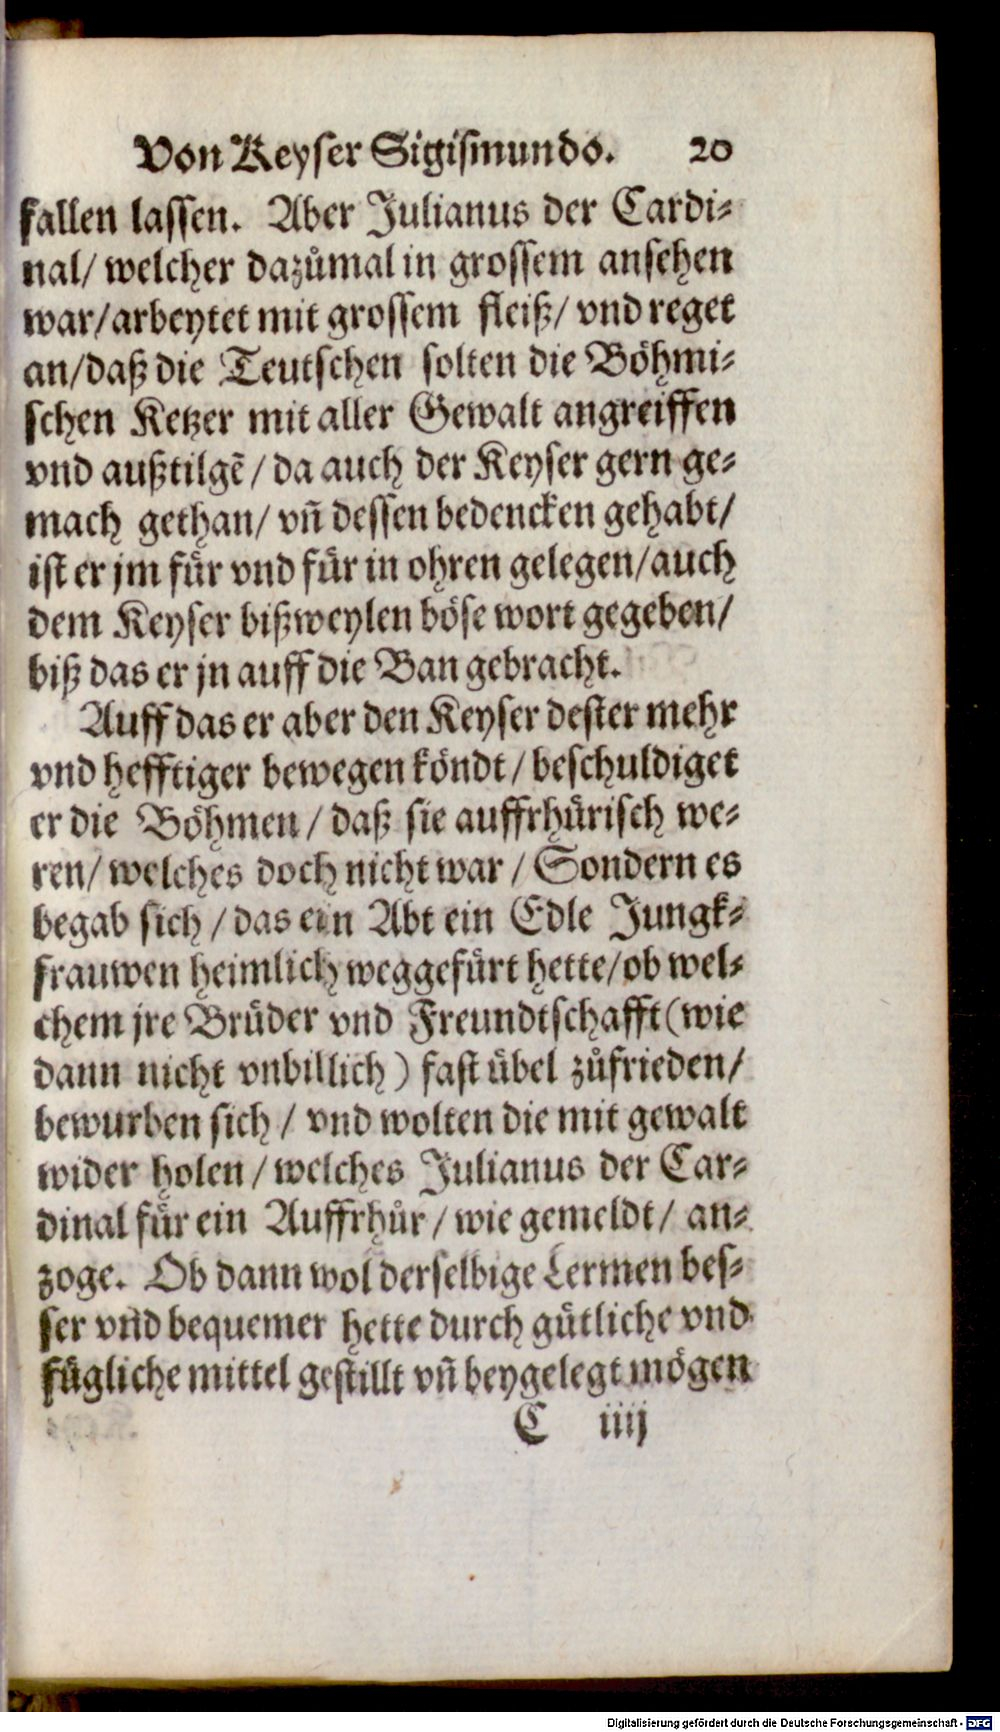 Von Keyser Sigismundo. 20
fallen lassen. Aber Julianus der Cardi-
nal/ welcher dazůmal in grossem ansehen
war/ arbeytet mit grossem fleiß/ vnd reget
an/ daß die Teutschen solten die Böhmi-
schen Ketzer mit aller Gewalt angreiffen
vnd außtilgē/ da auch der Keyser gern ge-
mach gethan/ vñ dessen bedencken gehabt/
ist er jm für vnd für in ohren gelegen/ auch
dem Keyser bißweylen böse wort gegeben/
biß das er jn auff die Ban gebracht.
Auff das er aber den Keyser dester mehr
vnd hefftiger bewegen köndt/ beschuldiget
er die Böhmen/ daß sie auffrhürisch we-
ren/ welches doch nicht war/ Sondern es
begab sich/ das ein Abt ein Edle Jungk-
frauwen heimlich weggefürt hette/ ob wel-
chem jre Brüder vnd Freundtschafft (wie
dann nicht vnbillich) fast übel zůfrieden/
bewurben sich/ vnd wolten die mit gewalt
wider holen/ welches Julianus der Car-
dinal für ein Auffrhůr/ wie gemeldt/ an-
zoge. Ob dann wol derselbige Lermen bes-
ser vnd bequemer hette durch gütliche vnd
fügliche mittel gestillt vñ beygelegt mögen
C iiij
Digitalisierung gefördert durch die Deutsche Forschungsgemeinschaft - DFG